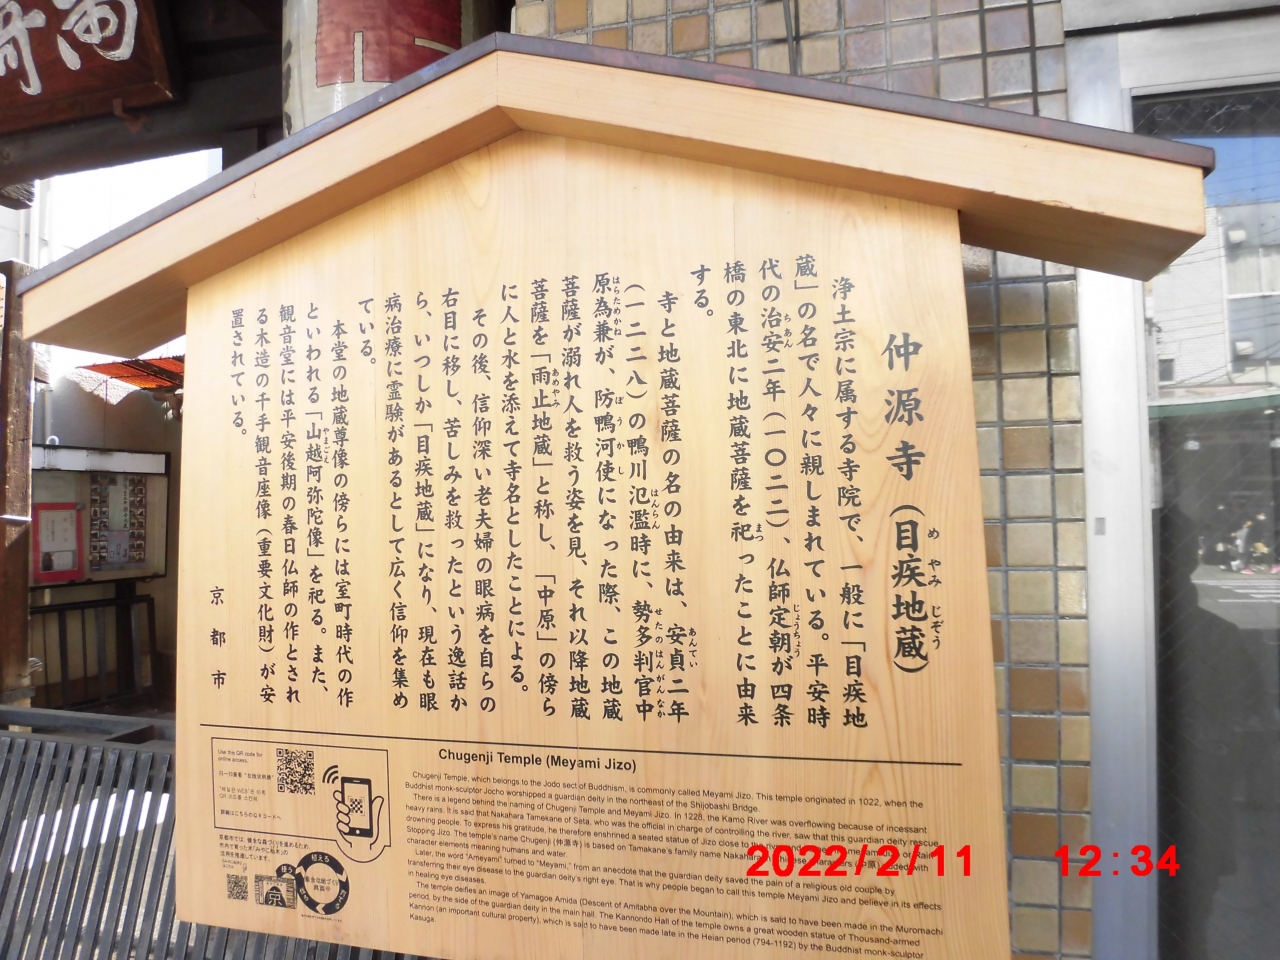 仲源寺（目疾地蔵）
め やみ じぞう
浄土宗に属する寺院で、一般に「目疾地
蔵」の名で人々に親しまれている。平安時
代の治安二年（一〇二二）、仏師定朝が四条
ちあん じょうちょう
橋の東北に地蔵菩薩を祀ったことに由来
まつ
する。
寺と地蔵菩薩の名の由来は、安貞二年
あんてい
（一二二八）の鴨川氾濫時に、勢多判官中
はんらん せたのはんがんなか
原為兼が、防鴨河使になった際、この地蔵
はらためかね ぼうかし
菩薩が溺れ人を救う姿を見、それ以降地蔵
菩薩を「雨止地蔵」と称し、「中原」の傍ら
あめやみ
に人と水を添えて寺名としたことによる。
その後、信仰深い老夫婦の眼病を自らの
右目に移し、苦しみを救ったという逸話か
ら、いつしか「目疾地蔵」になり、現在も眼
病治療に霊験があるとして広く信仰を集め
ている。
本堂の地蔵尊像の傍らには室町時代の作
といわれる「山越阿弥陀像」を祀る。また、
やまごえ
観音堂には平安後期の春日仏師の作とされ
る木造の千手観音座像（重要文化財）が安
置されている。
京都市
Use this QR code for
online access.
Chugenji Temple (Meyami Jizo)
Chugenji Temple, which belongs to the Jodo sect of Buddhism, is commonly called Meyami Jizo. This temple originated in 1022, when the
Buddhist monk-sculptor Jocho worshipped a guardian deity in the northeast of the Shijobashi Bridge.
There is a legend behind the naming of Chugenji Temple and Meyami Jizo. In 1228, the Kamo River was overflowing because of incessant
heavy rains. It is said that Nakahara Tamekane of Seta, who was the official in charge of controlling the river, saw that this guardian deity rescue
drowning people. To express his gratitude, he therefore enshrined a seated statue of Jizo close to the
Stopping Jizo. The temple's name Chugenji (仲源寺) is based on Tamakane's family name Nakahara (中原) added with
character elements meaning humans and water.
Later, the word "Ameyami" turned to "Meyami," from an anecdote that the guardian deity saved the pain of a religious old couple by
transferring their eye disease to the guardian deity's right eye. That is why people began to call this temple Meyami Jizo and believe in its effects
in healing eye diseases.
The temple deifies an image of Yamagoe Amida (Descent of Amitabha over the Mountain), which is said to have been made in the Muromachi
period, by the side of the guardian deity in the main hall. The Kannondo Hall of the temple owns a great wooden statue of Thousand-armed
Kannon (an important cultural property), which is said to have been made late in the Heian period (794-1192) by the Buddhist monk-sculptor
Kasuga.
2022/2/11 12:34